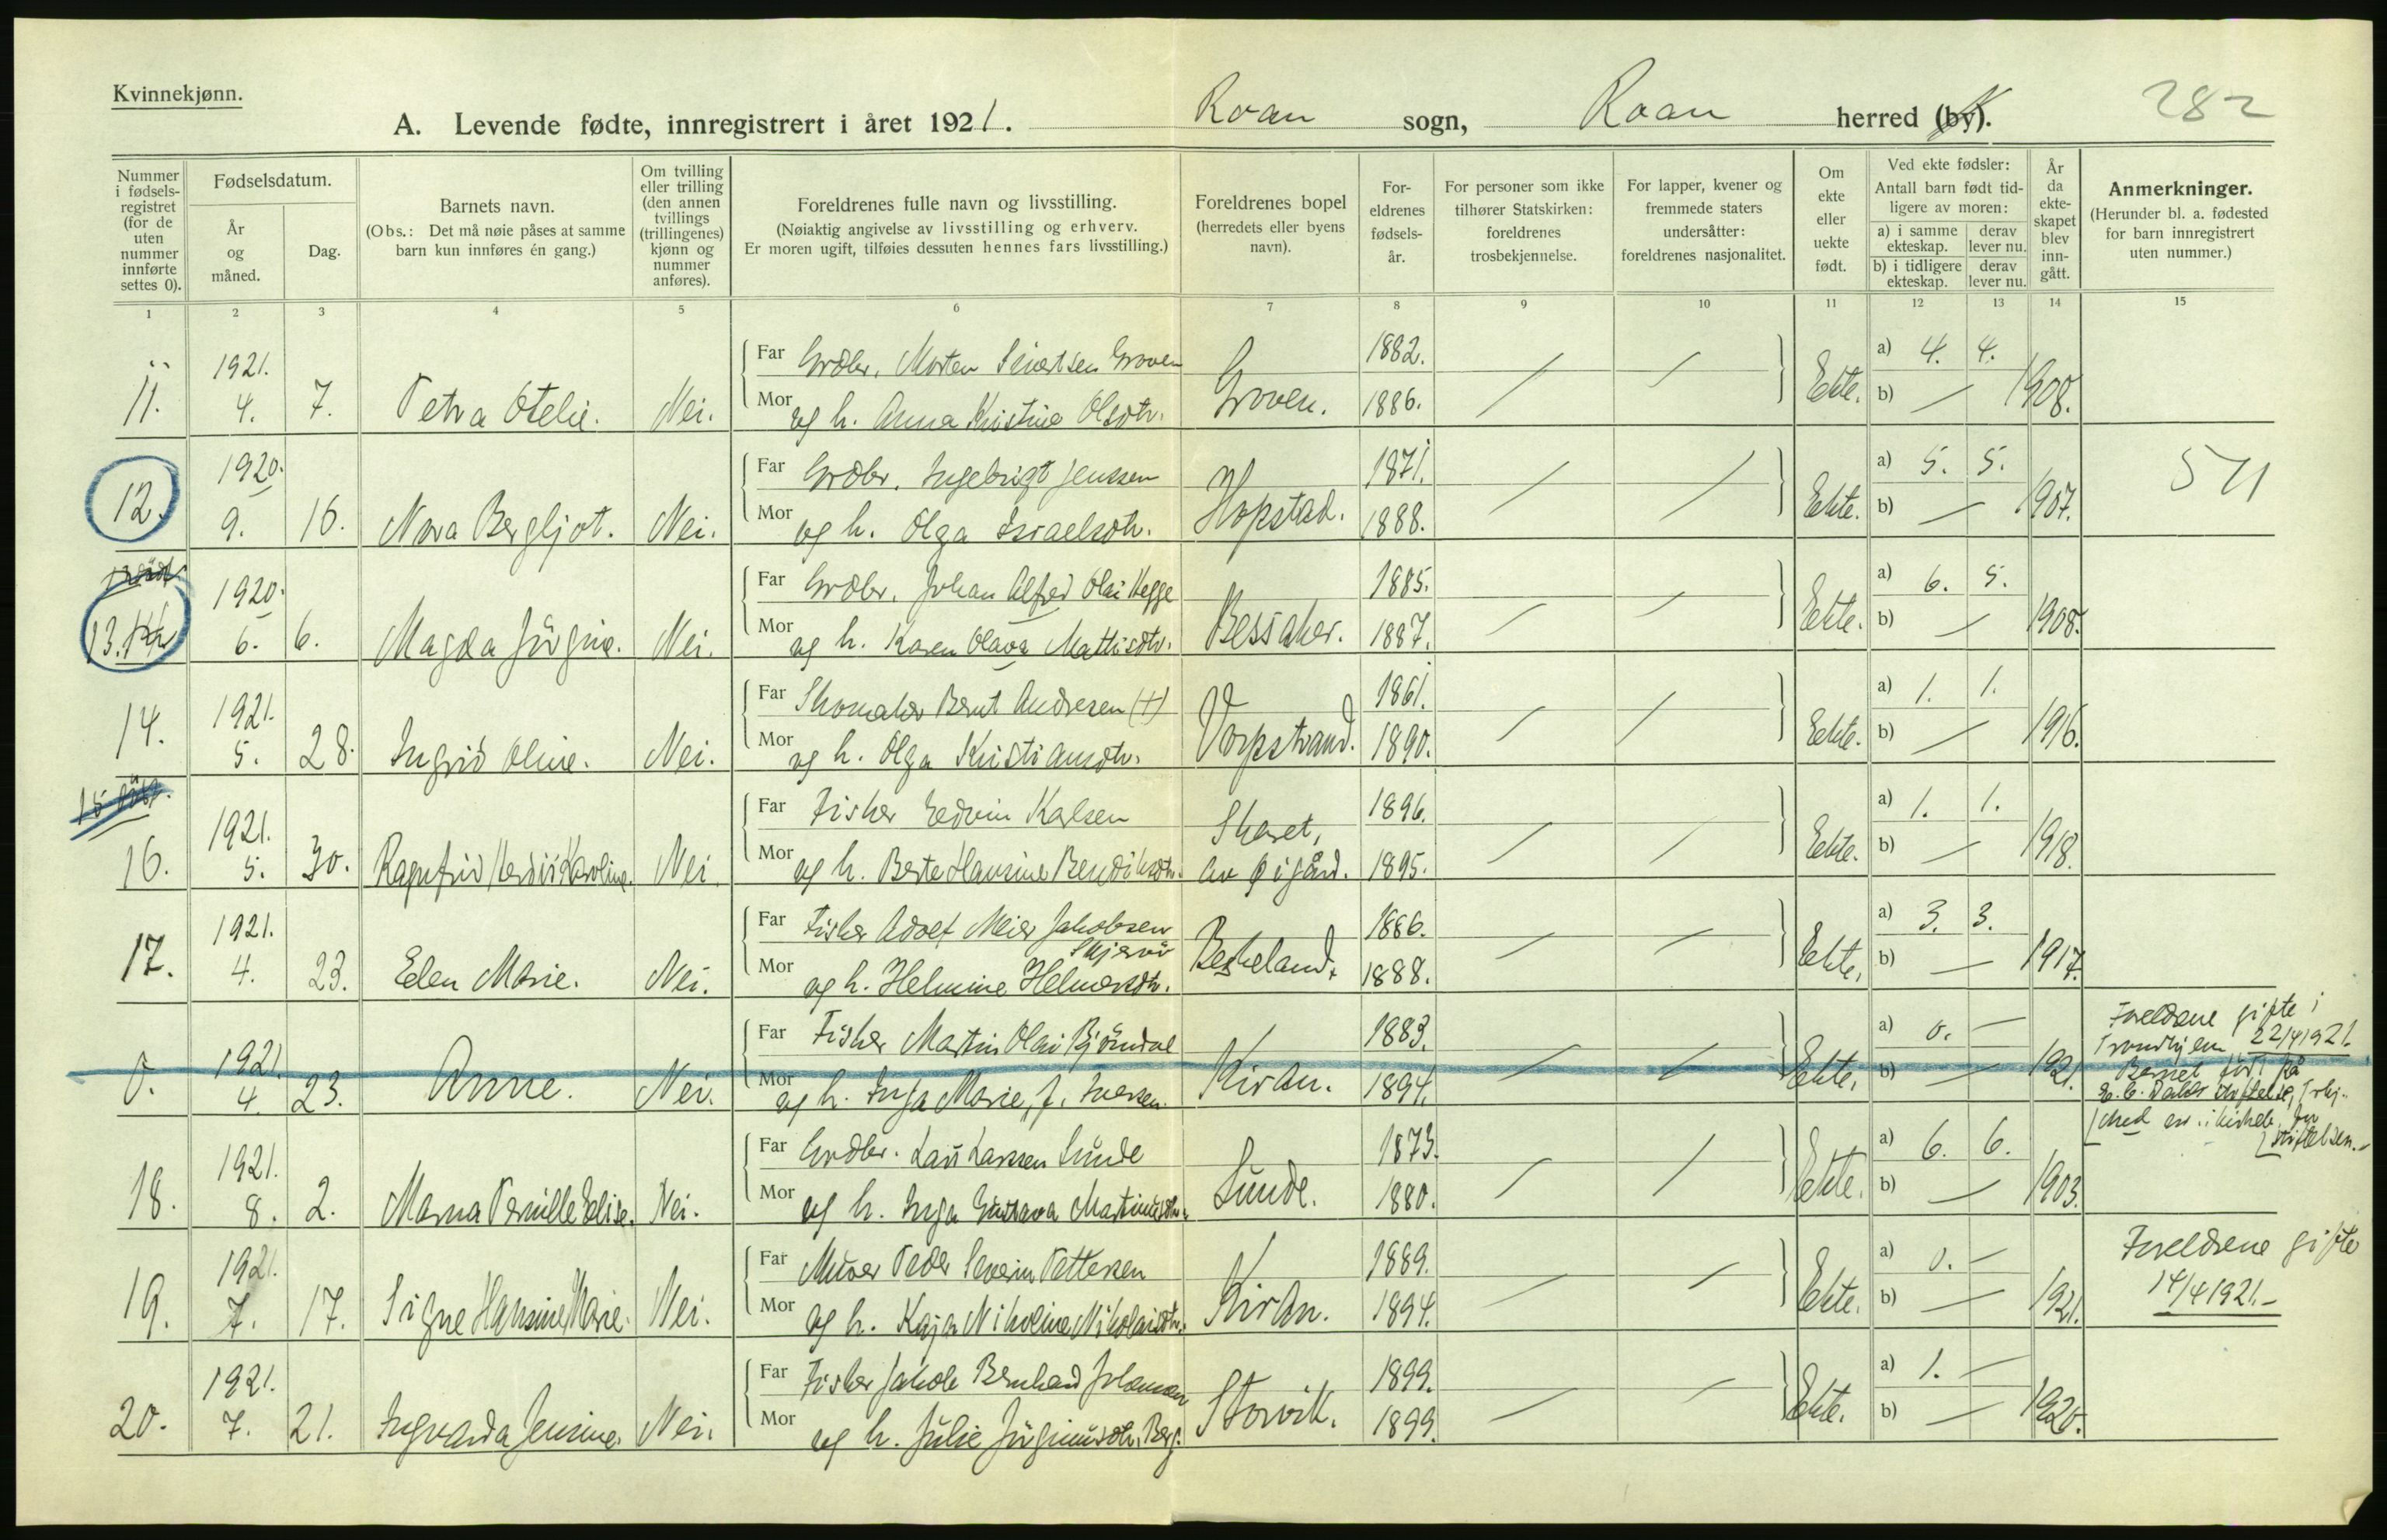 Kvinnekjønn.
A. Levende fødte, innregistrert i året 1921. Roan sogn, Roan herred (by).
282
Nummer i fødsels-registret (for de uten nummer innførte settes 0).
Fødselsdatum.
År og måned.
Dag.
Barnets navn.
(Obs.: Det må nøie påses at samme barn kun innføres én gang.)
Om tvilling eller trilling (den annen tvillings (trillingenes) kjønn og nummer anføres).
Foreldrenes fulle navn og livsstilling.
(Nøiaktig angivelse av livsstilling og erhverv.
Er moren ugift, tilføies dessuten hennes fars livsstilling.)
Foreldrenes bopel (herredets eller byens navn).
For-eldrenes fødsels-år.
For personer som ikke tilhører Statskirken: foreldrenes trosbekjennelse.
For lapper, kvener og fremmede staters undersåtter: foreldrenes nasjonalitet.
Om ekte eller uekte født.
Ved ekte fødsler:
Antall barn født tid-ligere av moren:
a) i samme ekteskap. derav lever nu.
b) i tidligere ekteskap. derav lever nu.
År da ekte-skapet blev inn-gått.
Anmerkninger.
(Herunder bl. a. fødested for barn innregistrert uten nummer.)
1 2 3 4 5 6 7 8 9 10 11 12 13 14 15
11. 1921. 4. 7. Petra Otelie. Nei.
Far Grdbr. Morten Sivertsen Groven 1882. a) 4. 4.
Mor og h. Anna Kristine Olsdtr. Groven. 1886. Ekte. b) — 1908.
12. 1920. 9. 16. Nora Bergljot. Nei.
Far Grdbr. Ingebrigt Jenssen 1871. a) 5. 5. 511
Mor og h. Olga Israelsdtr. Hopstad. 1888. Ekte. b) — 1907.
13. 1920. 6. 6. Magda Jørgine. Nei.
Far Grdbr. Johan Alfred Olai Hegge 1885. a) 6. 5.
Mor og h. Karen Olava Mattisdtr. Bessaker. 1887. Ekte. b) — 1908.
14. 1921. 5. 28. Ingrid Oline. Nei.
Far Skomaker Bernt Andresen (+) 1861. a) 1. 1.
Mor og h. Olga Kristiansdtr. Vorpstrand. 1890. Ekte. b) — 1916.
16. 1921. 5. 30. Ragnfrid Herdis Karoline. Nei.
Far Fisker Edvin Karlsen Skaret, 1896. a) 1. 1.
Mor og h. Berte Hansine Bendiksdtr. av Øigård. 1895. Ekte. b) — 1918.
17. 1921. 4. 23. Eden Marie. Nei.
Far Fisker Adolf Meier Jakobsen Skjervø 1886. a) 3. 3.
Mor og h. Helmine Helmersdtr. Beskeland. 1888. Ekte. b) — 1917.
0. 1921. 4. 23. Anne. Nei.
Far Fisker Martin Olai Bjørndal 1883. a) 0. —
Mor og h. Inga Marie, f. Iversen. Kiran. 1894. Ekte. b) — 1921.
Foreldrene gifte i
Trondhjem 22/4 1921.
Barnet født på
E. C. Dahls stiftelse, Trhj.
18. 1921. 8. 2. Marna Pernille Elise. Nei.
Far Grdbr. Lars Larssen Sunde 1873. a) 6. 6.
Mor og h. Inga Gustava Martinusdtr. Sunde. 1880. Ekte. b) — 1903.
19. 1921. 7. 17. Signe Hansine Marie. Nei.
Far Murer Peder Severin Pettersen 1889. a) 0. —
Mor og h. Kaja Nikoline Nikolaisdtr. Kiran. 1894. Ekte. b) — 1921.
Foreldrene gifte
14/4 1921.
20. 1921. 7. 21. Ingvarda Jensine. Nei.
Far Fisker Jakob Bernhard Johansen 1899. a) 1. —
Mor og h. Julie Jørginusdtr. Berg. Storvik. 1899. Ekte. b) — 1920.